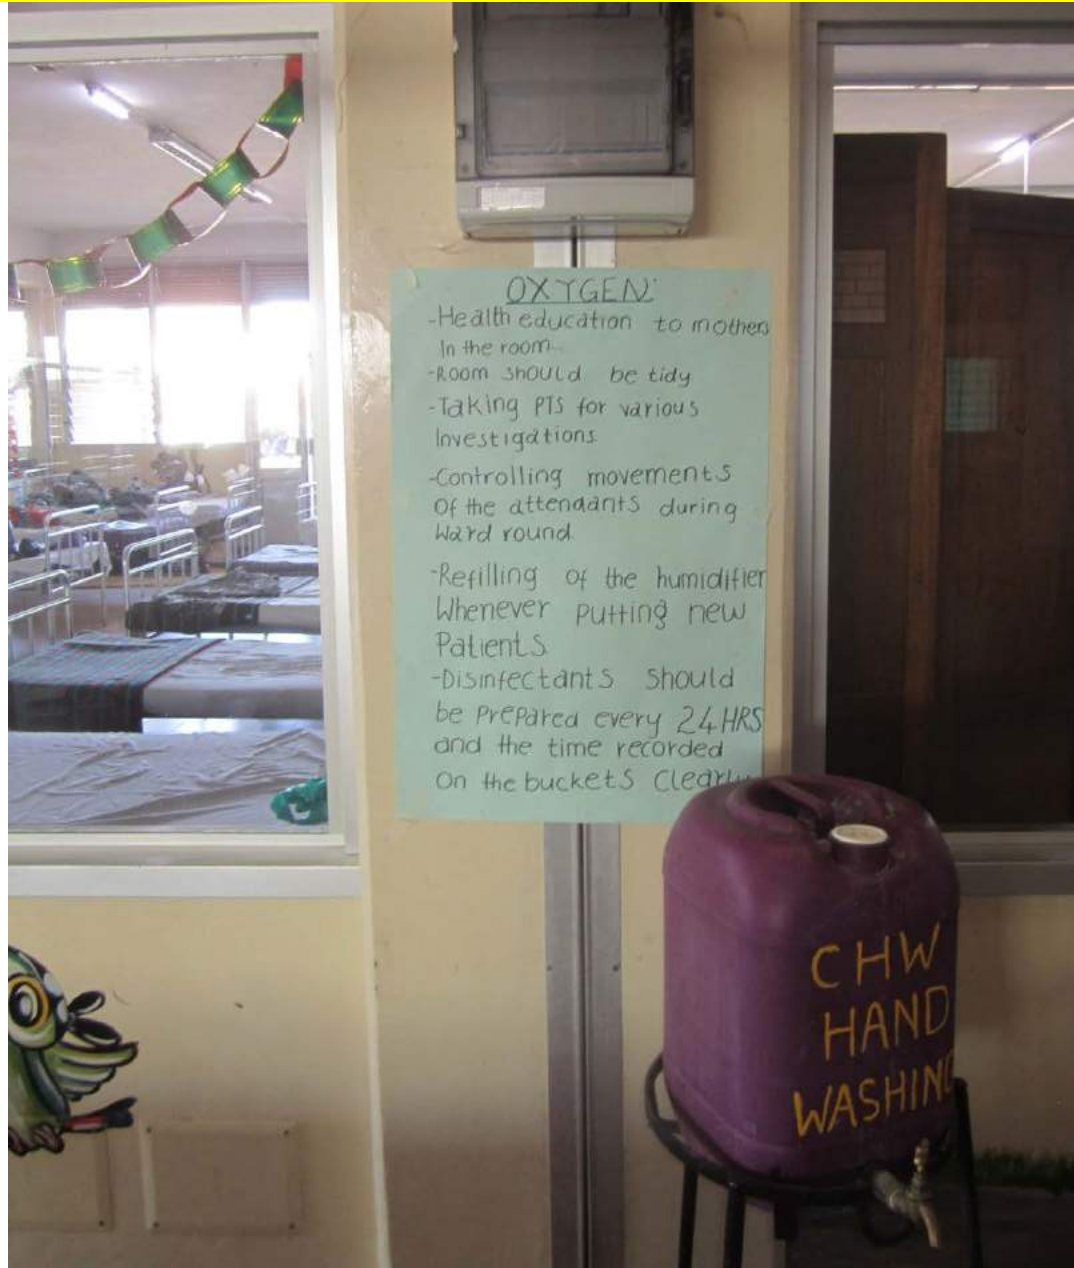 OXYGEN:
-Health education to mothers
In the room
-Room should be tidy
-Taking PTS for various
Investigations
-Controlling movements
Of the attendants during
Ward round.
-Refilling of the humidifier
Whenever putting new
Patients
-Disinfectants should
be prepared every 24 HRS
and the time recorded
On the buckets Clearly
CHW
HAND
WASHING